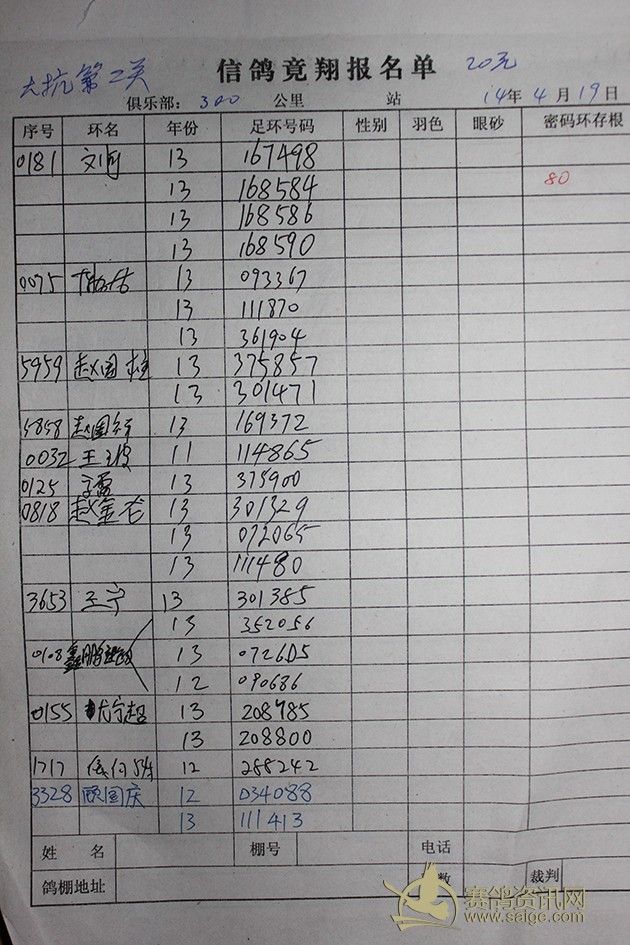 第二关 信鸽竟翔报名单 20元
俱乐部： 300 公里 站 14年 4月 19日
序号 环名 年份 足环号码 性别 羽色 眼砂 密码环存根
0181 13 167498
13 168584 80
13 168586
13 168590
0075 13 093367
13 111870
13 361904
5959 赵国柱 13 375857
13 301471
5858 赵国 13 169372
0032 王 11 114865
0125 13 375900
0818 赵金 13 301329
13 072065
13 111480
3653 王宁 13 301385
13 352056
0108 鑫鹏 13 072605
12 090686
0155 尤宁超 13 208785
13 208800
1717 12 288242
3328 顾国庆 12 034088
13 111413
姓 名 棚号 电话
鸽棚地址： 数 裁判
赛鸽资讯网
www.saige.com